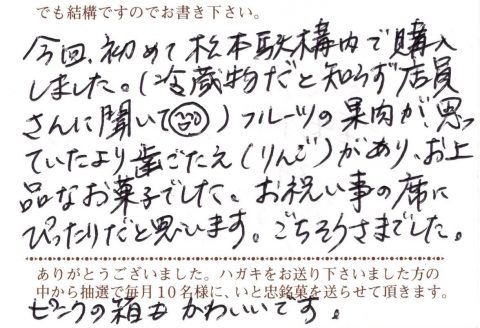 でも結構ですのでお書き下さい。
今回、初めて松本駅構内で購入
しました。(冷蔵物だと知らず店員
さんに聞いて)フルーツの果肉が思っ
ていたより歯ごたえ(りんご)があり、お上
品なお菓子でした。お祝い事の席に
ぴったりだと思います。ごちそうさまでした。
ありがとうございました。ハガキをお送り下さいました方の
中から抽選で毎月10名様に、いと忠銘菓を送らせて頂きます。
ピンクの箱もかわいいです。